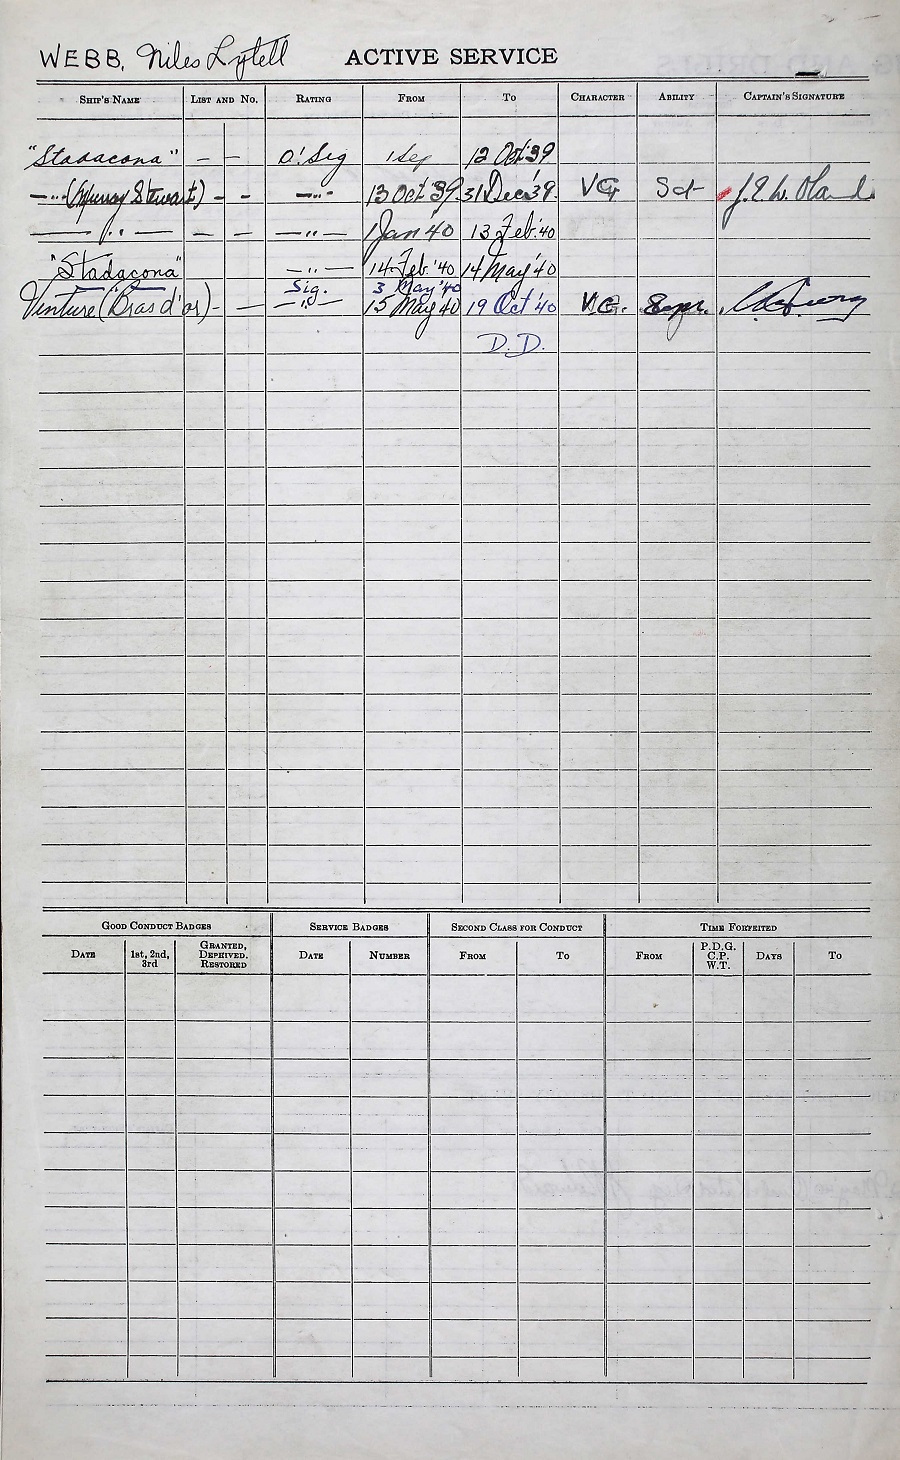 WEBB, Niles Lytell ACTIVE SERVICE
SHIP'S NAME LIST AND NO. RATING FROM TO CHARACTER ABILITY CAPTAIN'S SIGNATURE
"Stadacona" — — O.Sig 1 Sep 12 Oct '39
—"— (Murray Stewart) - - —"— 13 Oct '39 31 Dec '39. VG Sat J.E.W. Oland
—— " —— — — —"— 1 Jan '40 13 Feb. '40
"Stadacona" —"— 14 Feb. '40 14 May '40
Sig. 3 May '40
Venture (Bras d'or) - — —"— 15 May 40 19 Oct '40 V.G.
D.D.
GOOD CONDUCT BADGES SERVICE BADGES SECOND CLASS FOR CONDUCT TIME FORFEITED
DATE 1st, 2nd, 3rd GRANTED, DEPRIVED, RESTORED DATE NUMBER FROM TO FROM P.D.G. C.P. W.T. DAYS TO